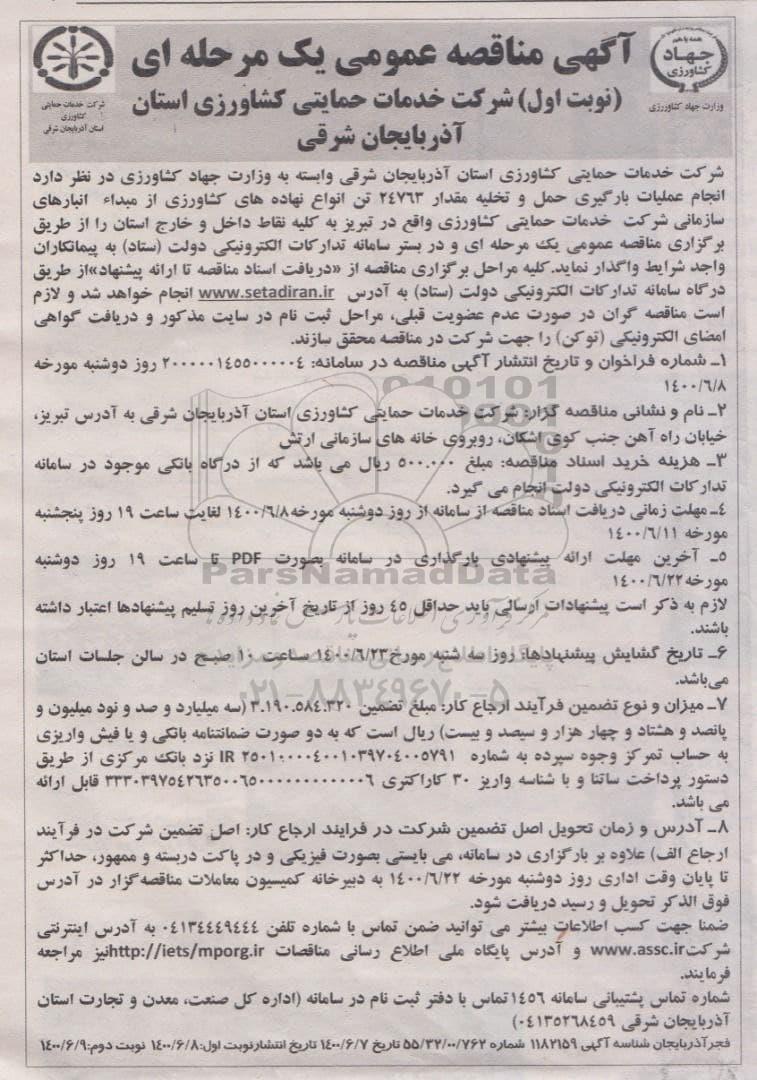 آگهی مناقصه عمومی یک مرحله ای
(نوبت اول) شرکت خدمات حمایتی کشاورزی استان
آذربایجان شرقی
همه با هم
جهاد
کشاورزی
وزارت جهاد کشاورزی
شرکت خدمات حمایتی
کشاورزی
استان آذربایجان شرقی
شرکت خدمات حمایتی کشاورزی استان آذربایجان شرقی وابسته به وزارت جهاد کشاورزی در نظر دارد
انجام عملیات بارگیری حمل و تخلیه مقدار ۲۴۷۶۳ تن انواع نهاده های کشاورزی از مبداء انبارهای
سازمانی شرکت خدمات حمایتی کشاورزی واقع در تبریز به کلیه نقاط داخل و خارج استان را از طریق
برگزاری مناقصه عمومی یک مرحله ای و در بستر سامانه تدارکات الکترونیکی دولت (ستاد) به پیمانکاران
واجد شرایط واگذار نماید.کلیه مراحل برگزاری مناقصه از «دریافت اسناد مناقصه تا ارائه پیشنهاد»از طریق
درگاه سامانه تدارکات الکترونیکی دولت (ستاد) به آدرس www.setadiran.ir انجام خواهد شد و لازم
است مناقصه گران در صورت عدم عضویت قبلی، مراحل ثبت نام در سایت مذکور و دریافت گواهی
امضای الکترونیکی (توکن) را جهت شرکت در مناقصه محقق سازند.
۱ـ شماره فراخوان و تاریخ انتشار آگهی مناقصه در سامانه: ۲۰۰۰۰۰۱۴۵۵۰۰۰۰۰۴ روز دوشنبه مورخه
۱۴۰۰/۶/۸
۲ـ نام و نشانی مناقصه گزار: شرکت خدمات حمایتی کشاورزی استان آذربایجان شرقی به آدرس تبریز،
خیابان راه آهن جنب کوی اشکان، روبروی خانه های سازمانی ارتش
۳ـ هزینه خرید اسناد مناقصه: مبلغ ۵۰۰.۰۰۰ ریال می باشد که از درگاه بانکی موجود در سامانه
تدارکات الکترونیکی دولت انجام می گیرد.
۴ـ مهلت زمانی دریافت اسناد مناقصه از سامانه از روز دوشنبه مورخه ۱۴۰۰/۶/۸ لغایت ساعت ۱۹ روز پنجشنبه
مورخه ۱۴۰۰/۶/۱۱
۵ـ آخرین مهلت ارائه پیشنهادی بارگذاری در سامانه بصورت PDF تا ساعت ۱۹ روز دوشنبه
مورخه ۱۴۰۰/۶/۲۲
لازم به ذکر است پیشنهادات ارسالی باید حداقل ۴۵ روز از تاریخ آخرین روز تسلیم پیشنهادها اعتبار داشته
باشند.
۶ـ تاریخ گشایش پیشنهادها: روز سه شنبه مورخ ۱۴۰۰/۶/۲۳ ساعت ۱۰ صبح در سالن جلسات استان
می‌باشد.
۷ـ میزان و نوع تضمین فرآیند ارجاع کار: مبلغ تضمین ۳.۱۹۰.۵۸۴.۳۲۰ (سه میلیارد و صد و نود میلیون و
پانصد و هشتاد و چهار هزار و سیصد و بیست) ریال است که به دو صورت ضمانتنامه بانکی و یا فیش واریزی
به حساب تمرکز وجوه سپرده به شماره IR ۲۵۰۱۰۰۰۰۴۰۰۱۰۳۹۷۰۴۰۰۵۷۹۱ نزد بانک مرکزی از طریق
دستور پرداخت ساتنا و با شناسه واریز ۳۰ کاراکتری قابل ارائه
می باشد.
۸ـ آدرس و زمان تحویل اصل تضمین شرکت در فرایند ارجاع کار: اصل تضمین شرکت در فرآیند
ارجاع الف) علاوه بر بارگزاری در سامانه، می بایستی بصورت فیزیکی و در پاکت دربسته و ممهور، حداکثر
تا پایان وقت اداری روز دوشنبه مورخه ۱۴۰۰/۶/۲۲ به دبیرخانه کمیسیون معاملات مناقصه‌گزار در آدرس
فوق الذکر تحویل و رسید دریافت شود.
ضمنا جهت کسب اطلاعات بیشتر می توانید ضمن تماس با شماره تلفن ۰۴۱۳۴۴۴۹۴۴۴ به آدرس اینترنتی
شرکت www.assc.ir و آدرس پایگاه ملی اطلاع رسانی مناقصات http://iets/mporg.ir نیز مراجعه
فرمایند.
شماره تماس پشتیبانی سامانه ۱۴۵۶ تماس با دفتر ثبت نام در سامانه (اداره کل صنعت، معدن و تجارت استان
آذربایجان شرقی ۰۴۱۳۵۲۶۸۴۵۹)
فجرآذربایجان شناسه آگهی ۱۱۸۲۱۵۹ شماره ۵۵/۳۲/۰۰/۷۶۲ تاریخ ۱۴۰۰/۶/۷ تاریخ انتشارنوبت اول:۱۴۰۰/۶/۸ نوبت دوم:۱۴۰۰/۶/۹
ParsNamadData
۰۲۱-۸۸۳۴۹۶۷۰-۵